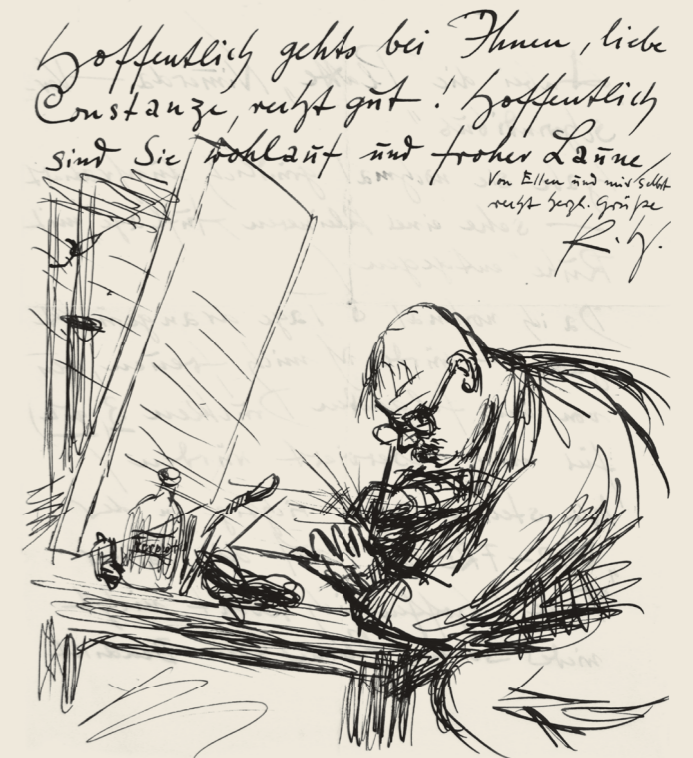 Hoffentlich gehts bei Ihnen, liebe
Constanze, recht gut. Hoffentlich
sind Sie wohlauf und froher Laune
Von Ellen und mir selbst
recht herzl. Grüße